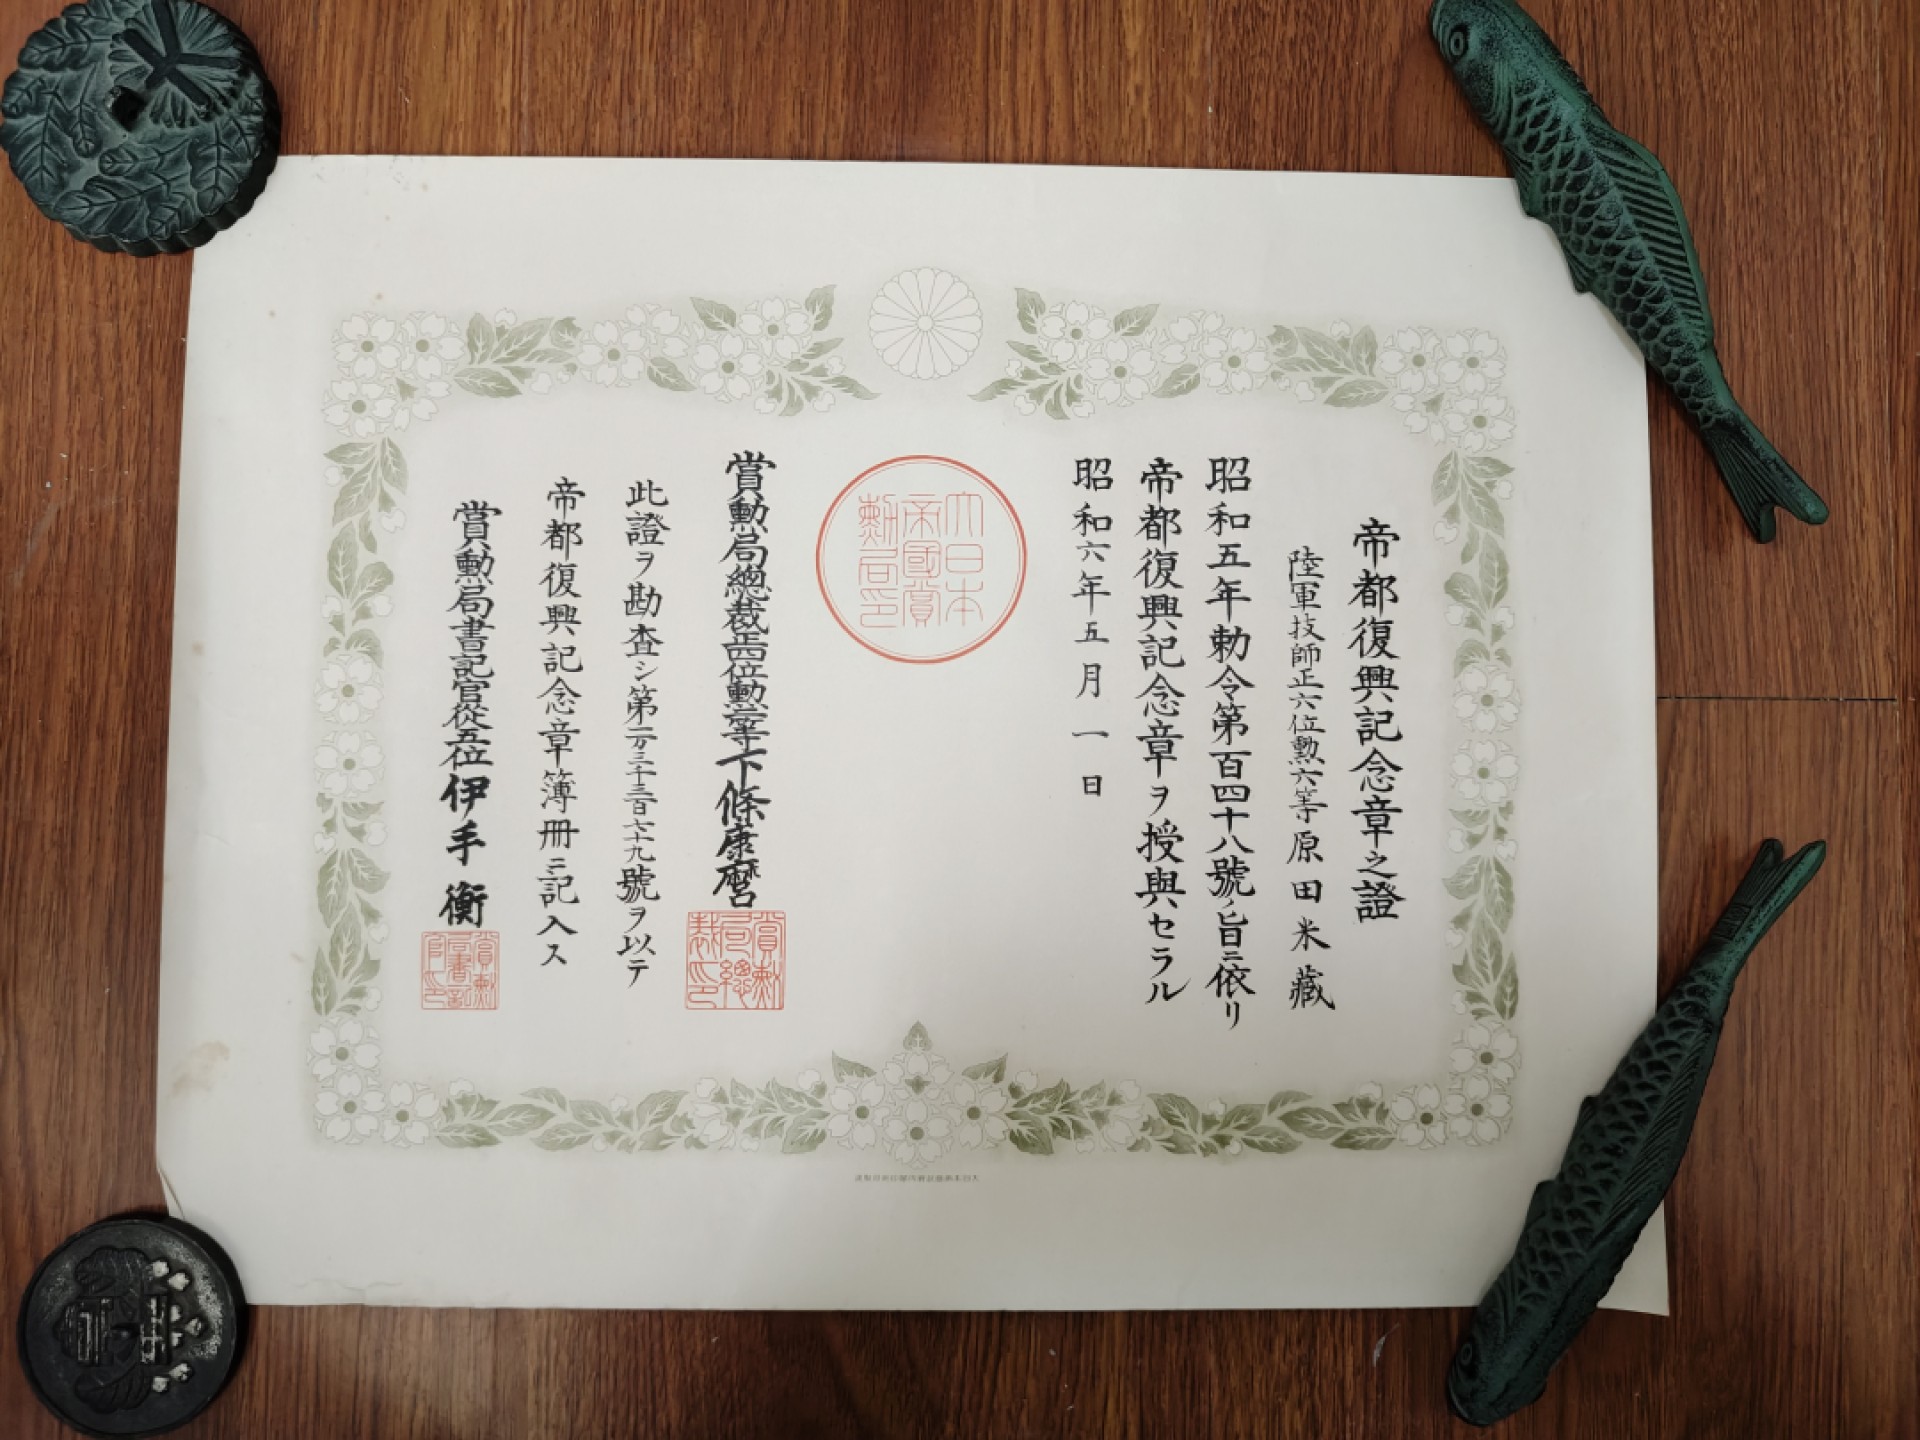 帝都復興記念章之證
陸軍技師正六位勲六等原田米藏
昭和五年勅令第百四十八號ノ旨ニ依リ
帝都復興記念章ヲ授與セラル
昭和六年五月一日
大日本
帝國賞
勲局印
賞勲局總裁正四位勲二等下條康麿
賞勲
局總
裁印
此證ヲ勘査シ第一万三千三百七十九號ヲ以テ
帝都復興記念章簿冊ニ記入ス
賞勲局書記官從五位伊手衡
賞勲
局書記
官印